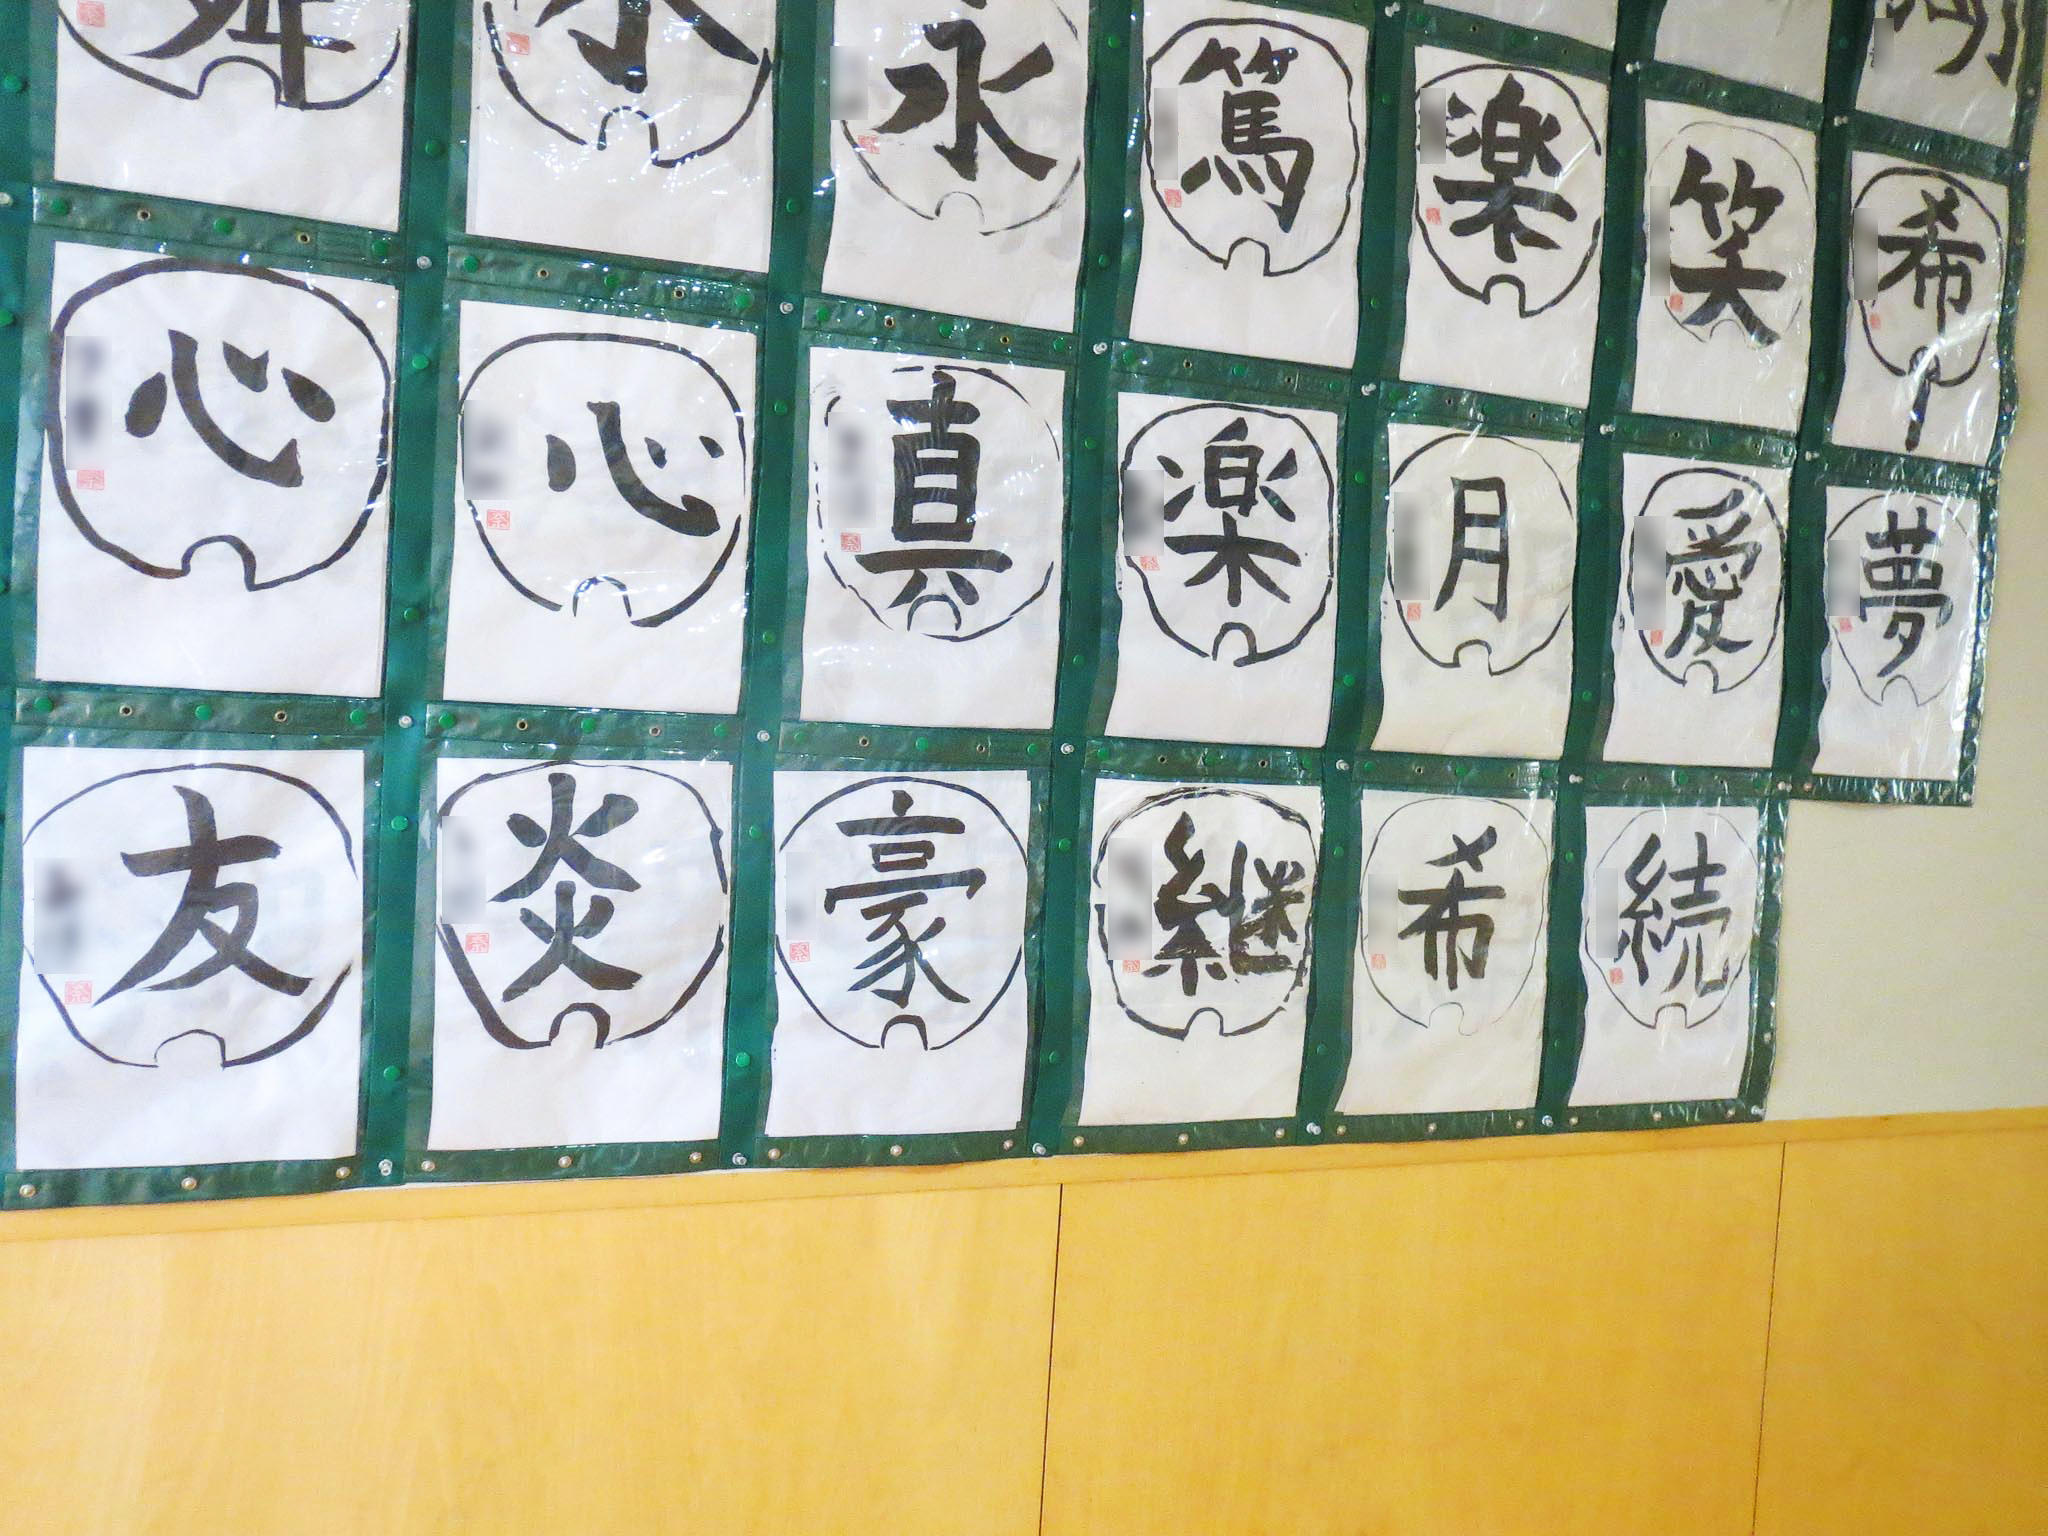 永 篤 楽 笑 希
心 心 真 楽 月 愛 夢
友 炎 豪 継 希 続